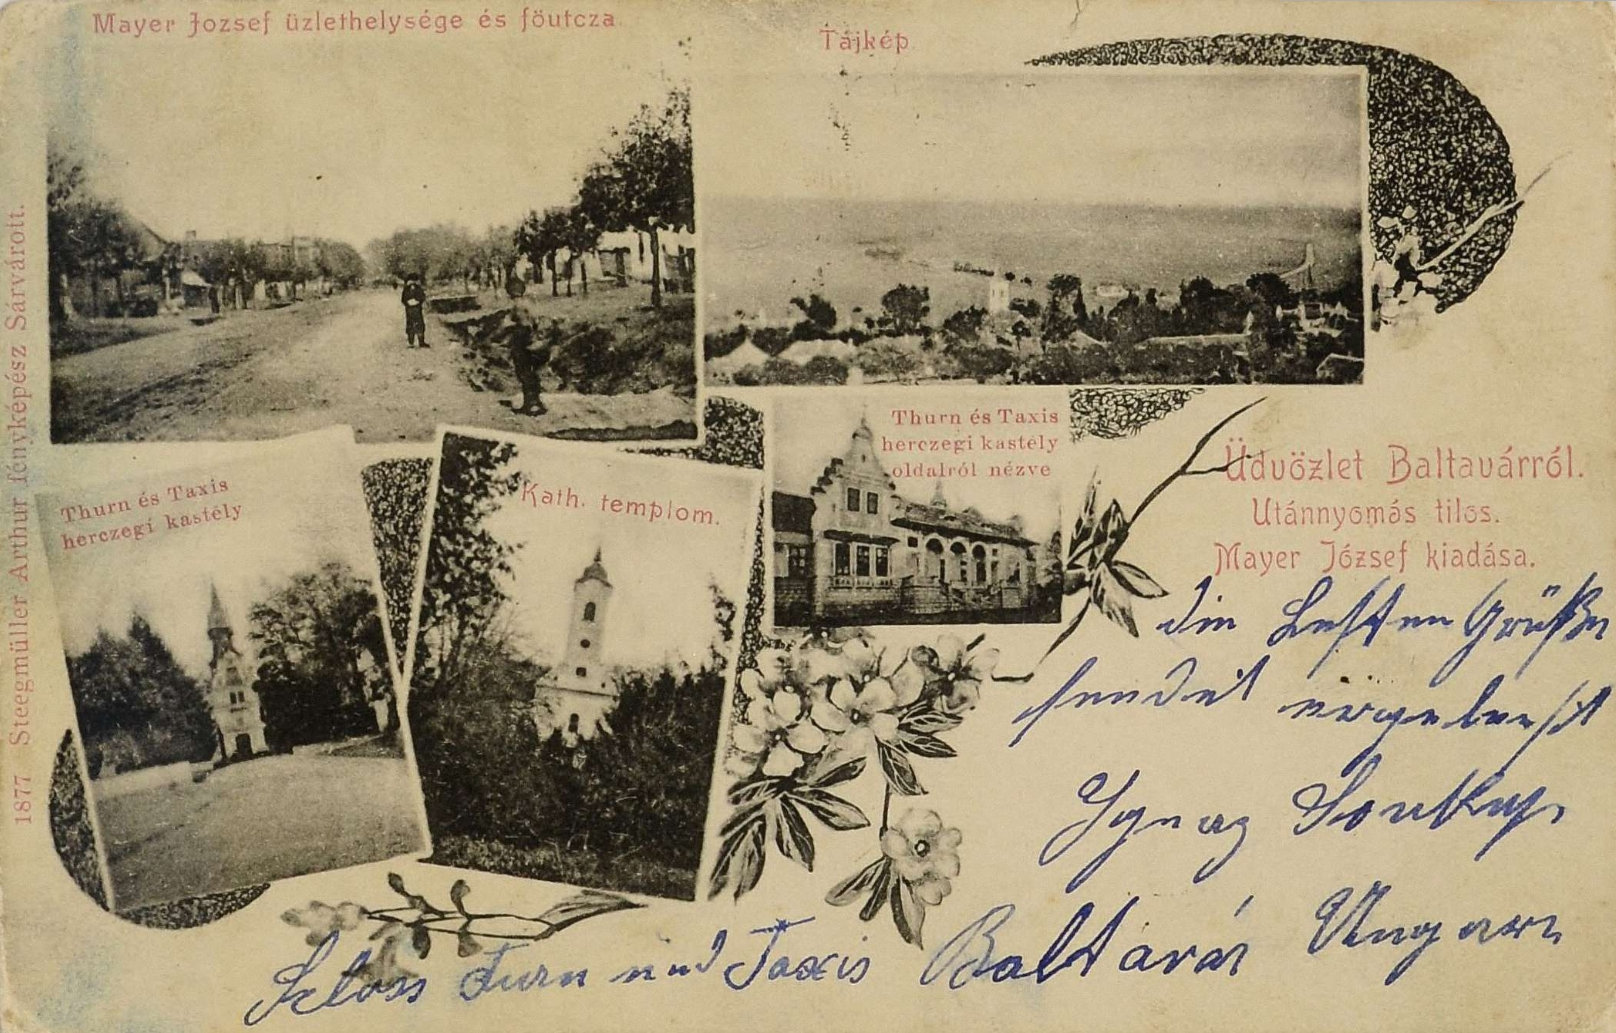 Mayer Jozsef üzlethelysége és föutcza.
Tájkép.
Thurn és Taxis
herczegi kastély
Kath. templom.
Thurn és Taxis
herczegi kastély
oldalról nézve
Üdvözlet Baltavárról.
Utánnyomás tilos.
Mayer József kiadása.
1877 Steegmüller Arthur fényképész Sárvárott.
die besten Grüße
sendet ergebenst
Ignaz
Scloss Turn und Taxis Baltavár Ungarn